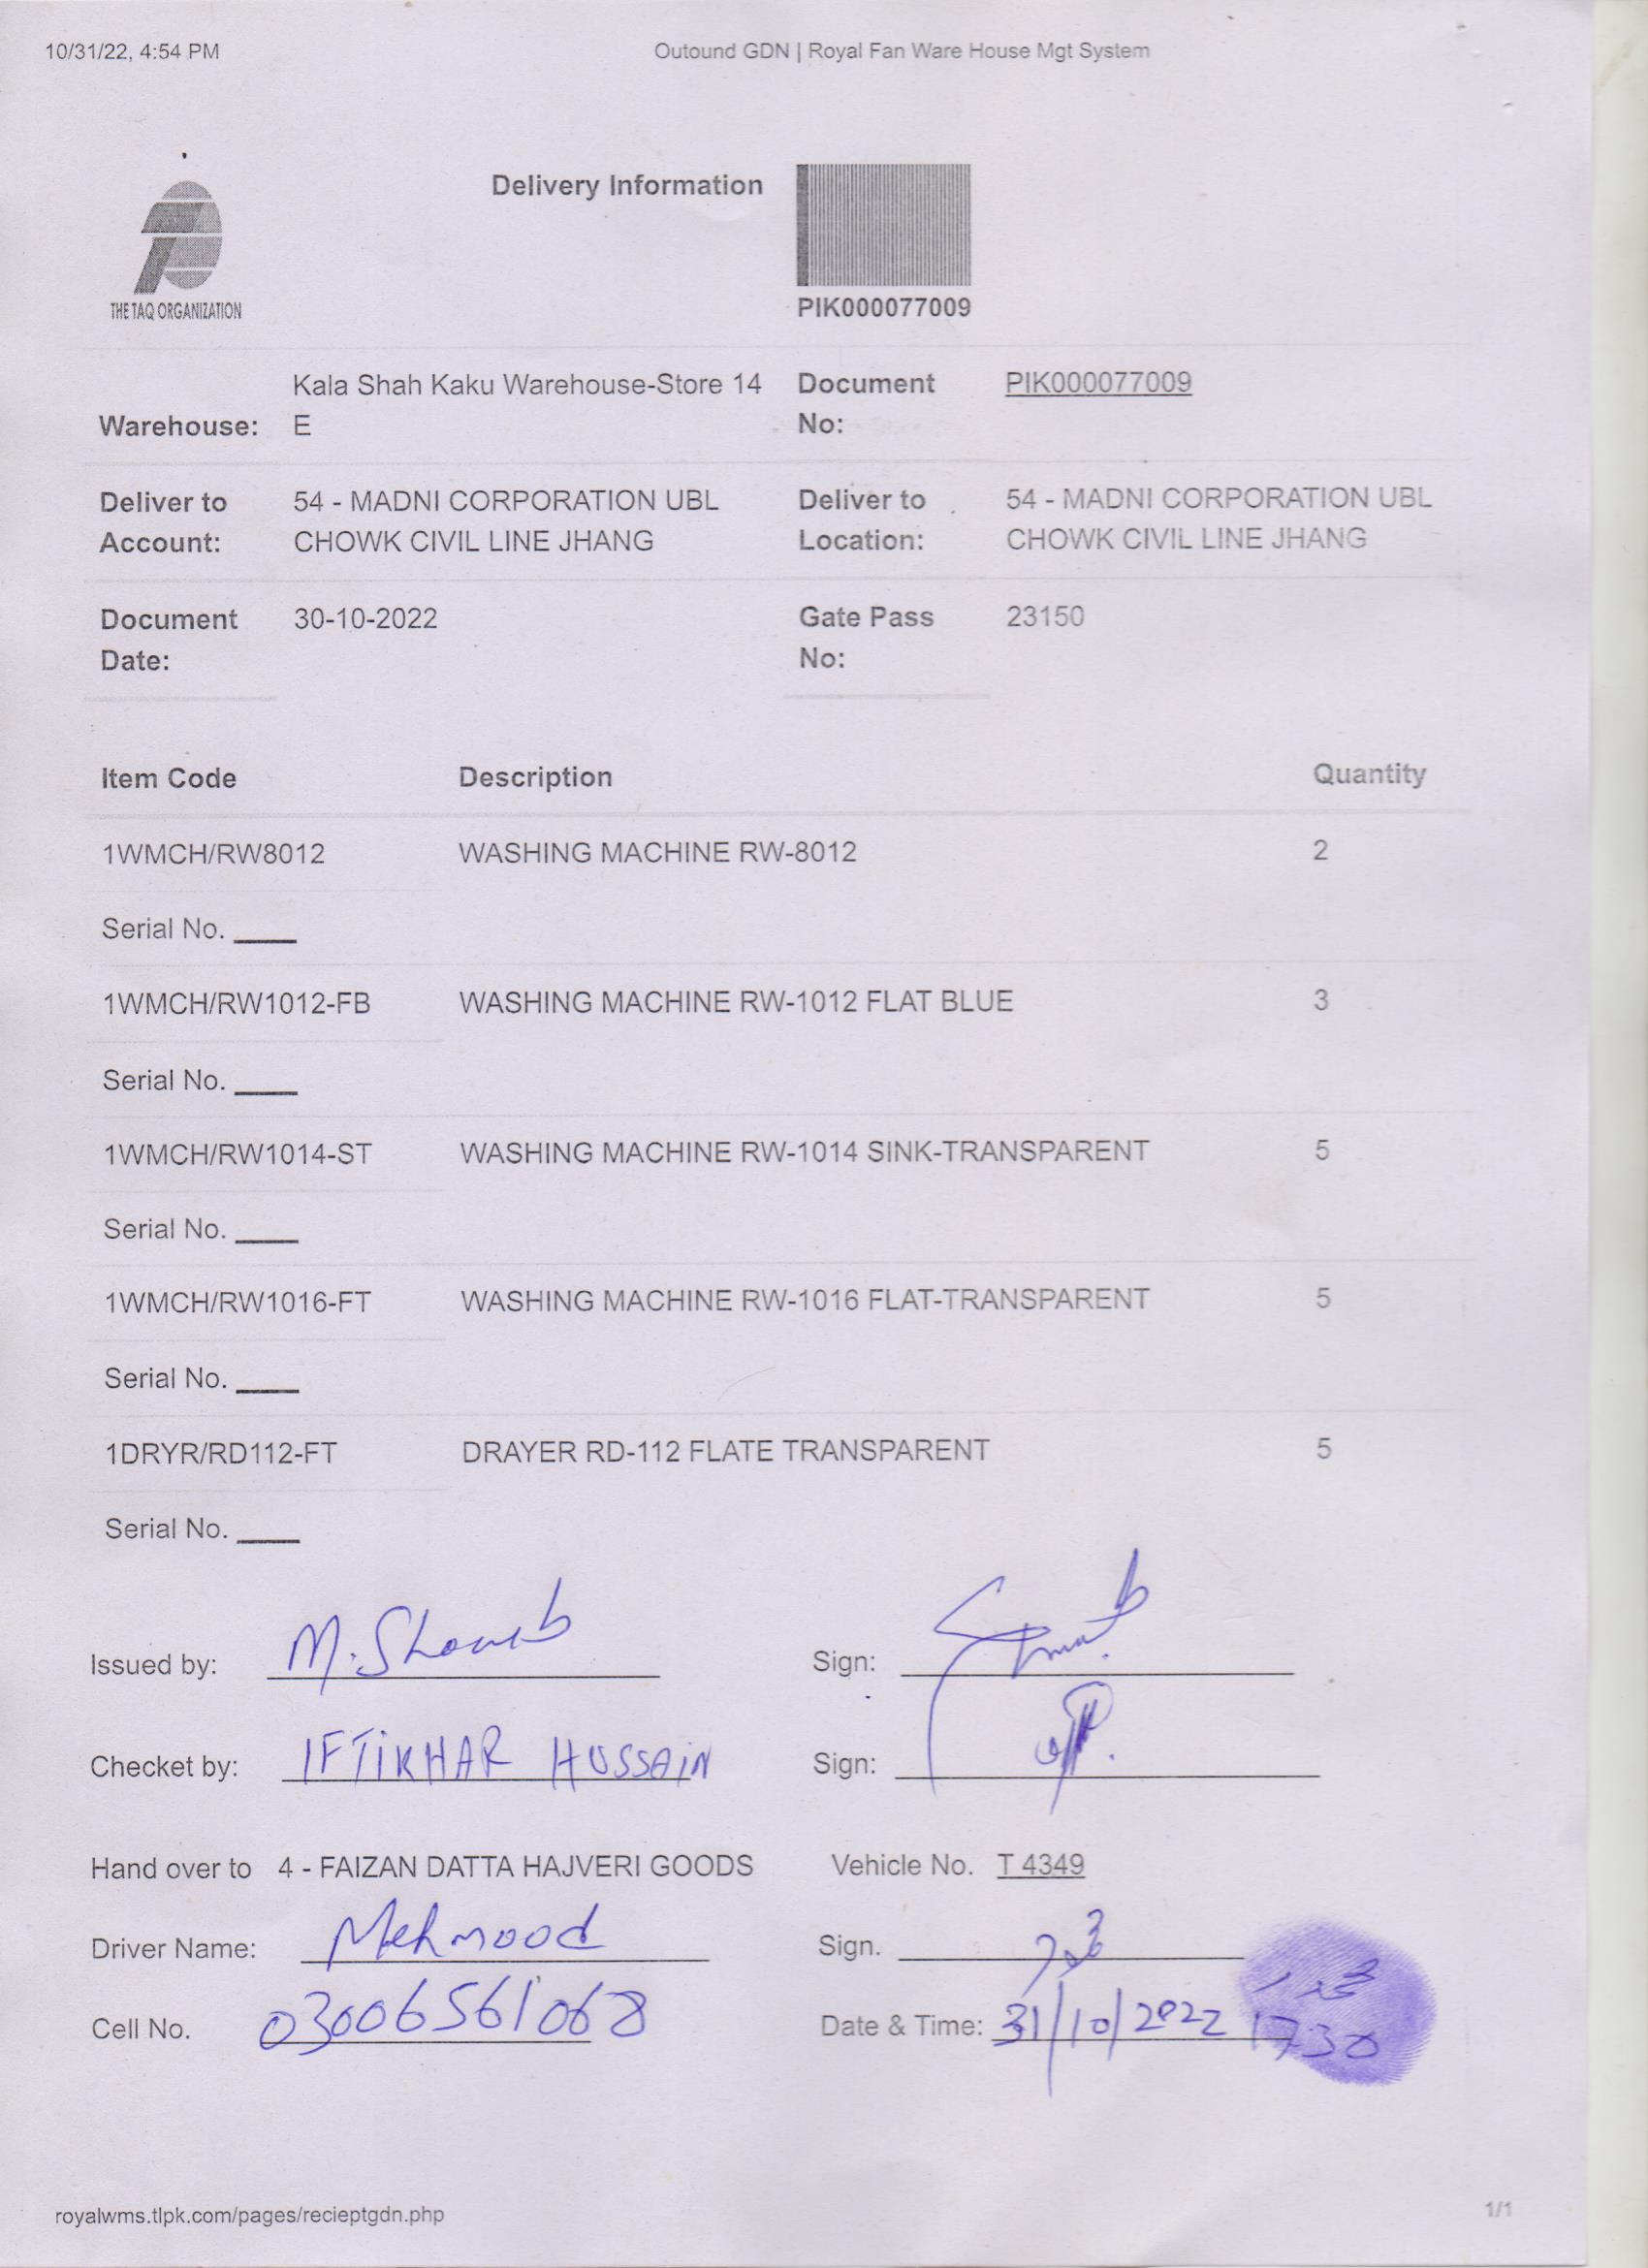 10/31/22, 4:54 PM
Outound GDN | Royal Fan Ware House Mgt System
THE TAQ ORGANIZATION
Delivery Information
PIK000077009
Warehouse: Kala Shah Kaku Warehouse-Store 14 E
Document No: PIK000077009
Deliver to Account: 54 - MADNI CORPORATION UBL CHOWK CIVIL LINE JHANG
Deliver to Location: 54 - MADNI CORPORATION UBL CHOWK CIVIL LINE JHANG
Document Date: 30-10-2022
Gate Pass No: 23150
Item Code Description Quantity
1WMCH/RW8012 WASHING MACHINE RW-8012 2
Serial No. ____
1WMCH/RW1012-FB WASHING MACHINE RW-1012 FLAT BLUE 3
Serial No. ____
1WMCH/RW1014-ST WASHING MACHINE RW-1014 SINK-TRANSPARENT 5
Serial No. ____
1WMCH/RW1016-FT WASHING MACHINE RW-1016 FLAT-TRANSPARENT 5
Serial No. ____
1DRYR/RD112-FT DRAYER RD-112 FLATE TRANSPARENT 5
Serial No. ____
Issued by: M. Shoaib Sign:
Checket by: IFTIKHAR HUSSAIN Sign:
Hand over to 4 - FAIZAN DATTA HAJVERI GOODS Vehicle No. T 4349
Driver Name: Mehmood Sign.
Cell No. 03006561068 Date & Time: 31/10/2022 1730
royalwms.tlpk.com/pages/recieptgdn.php 1/1